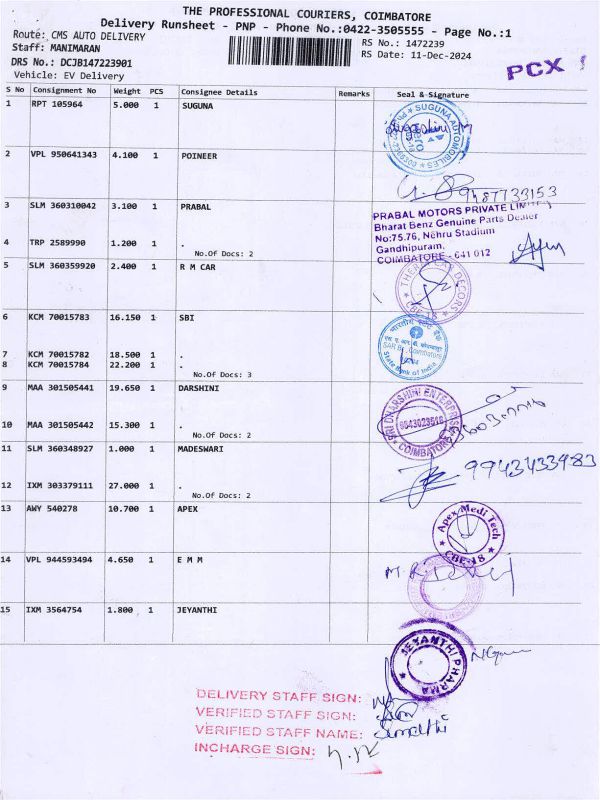 THE PROFESSIONAL COURIERS, COIMBATORE
Delivery Runsheet - PNP - Phone No.:0422-3505555 - Page No.:1
Route: CMS AUTO DELIVERY
Staff: MANIMARAN
DRS No.: DCJB147223901
Vehicle: EV Delivery
RS No.: 1472239
RS Date: 11-Dec-2024
PCX
S No Consignment No Weight PCS Consignee Details Remarks Seal & Signature
1 RPT 105964 5.000 1 SUGUNA
SUGUNA AUTOMOBILES
2 VPL 950641343 4.100 1 POINEER
9487733153
3 SLM 360310042 3.100 1 PRABAL
PRABAL MOTORS PRIVATE LIMITED
Bharat Benz Genuine Parts Dealer
No:75.76, Nehru Stadium
Gandhipuram,
COIMBATORE - 641 012
4 TRP 2589990 1.200 1 .
No.Of Docs: 2
5 SLM 360359920 2.400 1 R M CAR
CAR DECORS
CBE-18
6 KCM 70015783 16.150 1 SBI
भारतीय स्टेट बैंक
Coimbatore
State Bank of India
7 KCM 70015782 18.500 1 .
8 KCM 70015784 22.200 1 .
No.Of Docs: 3
9 MAA 301505441 19.650 1 DARSHINI
SRI DHARSHINI ENTERPRISES
COIMBATORE
10 MAA 301505442 15.300 1 .
No.Of Docs: 2
11 SLM 360348927 1.000 1 MADESWARI
9943433983
12 IXM 303379111 27.000 1 .
No.Of Docs: 2
13 AWY 540278 10.700 1 APEX
Apex Medi Tech
CBE-18
14 VPL 944593494 4.650 1 E M M
15 IXM 3564754 1.800 1 JEYANTHI
JEYANTHI PHARMA
DELIVERY STAFF SIGN:
VERIFIED STAFF SIGN:
VERIFIED STAFF NAME: Sumathi
INCHARGE SIGN: